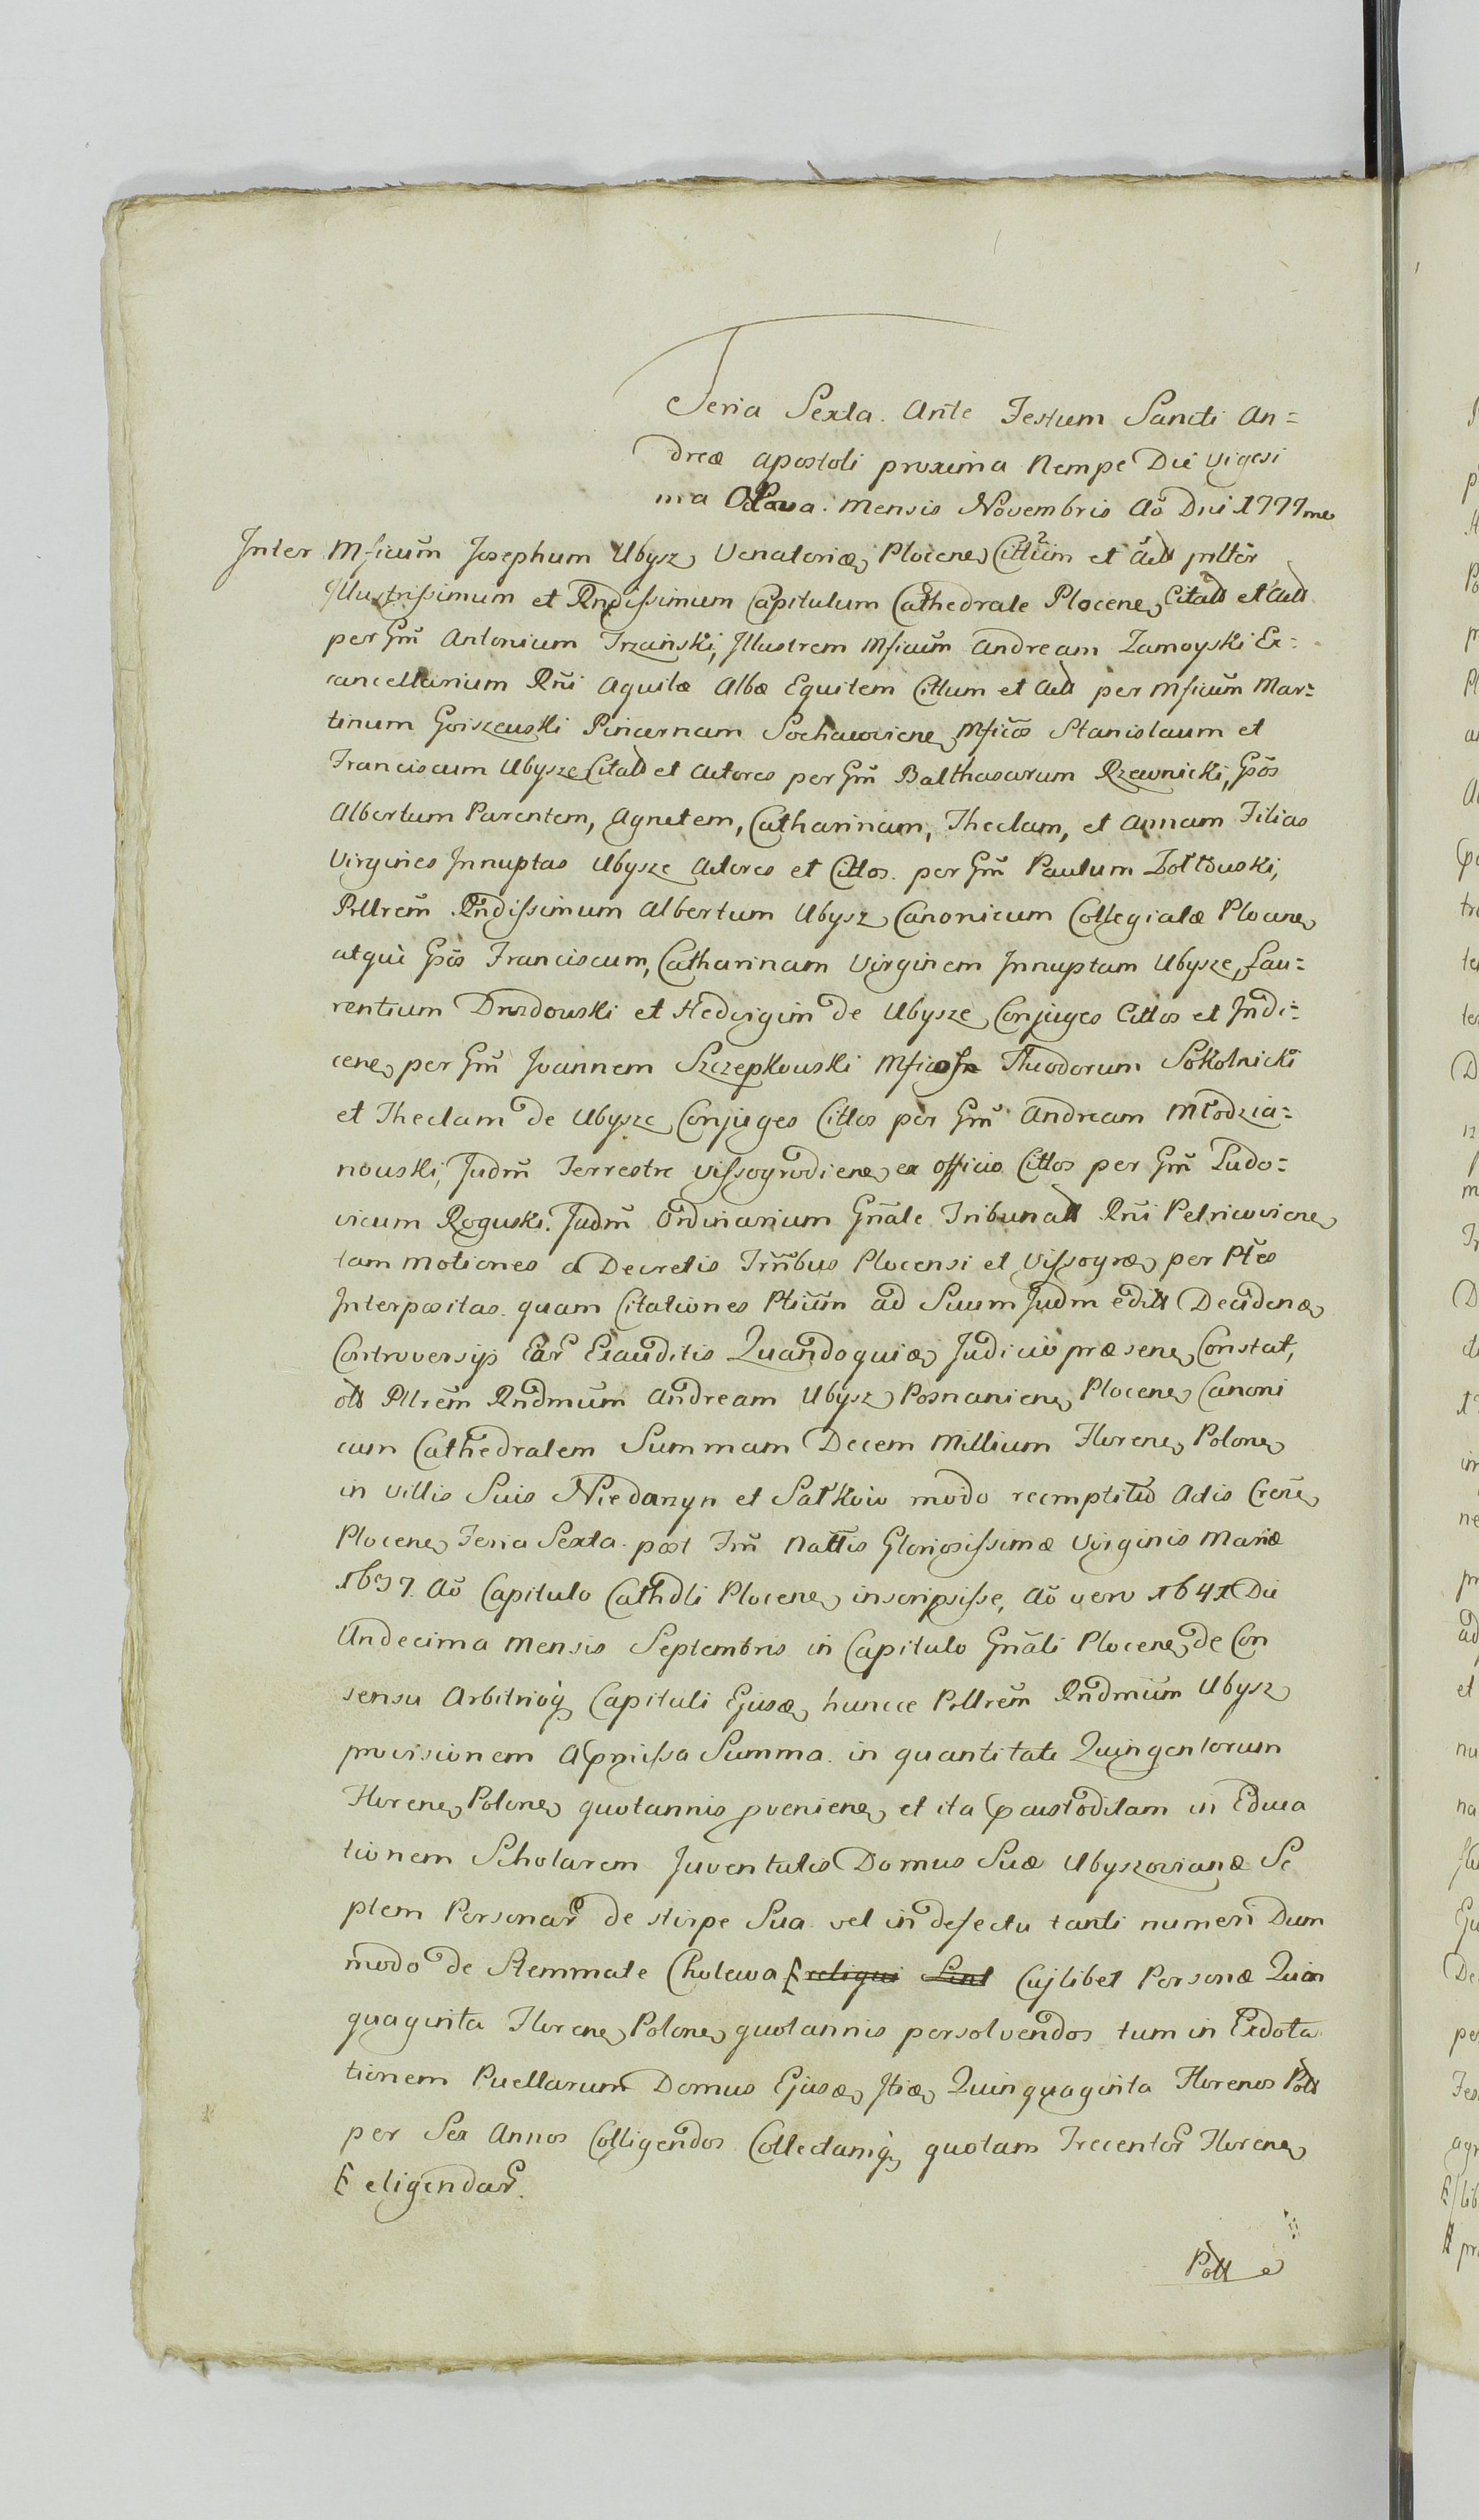 Feria Sexta Ante Festum Sancti An=
dreæ Apostoli proxima Nempe Die Vigesi
ma Octava Mensis Novembris Aō Dni 1777mo
Inter Mficum Josephum Ubysz Venatoriæ Plocene Cittum et Act pnltēr
Illustrissimum et Rndissimum Capitulum Cathedrale Plocene, Citatt et Act
per Gm̄ Antonium Trzański, Illustrem Mficum Andream Zamoyski Ex=
cancellarium Rni Aquilæ Albæ Equitem Cittum et Act per Mficum Mar=
tinum Goiszewski Pincernam Sochacoviene, Mficos Stanislaum et
Franciscum Ubysze Citatt et Actores per Gm̄ Balthasarum Rzewnicki, Gōs
Albertum Parentem, Agnetem, Catharinam, Theclam, et Annam Filias
Virgines Innuptas Ubysze Actores et Cittos per Gm̄ Paulum Zołtowski,
Pllrem̄ Rndissimum Albertum Ubysz Canonicum Collegiatæ Plocene
atqui Gōs Franciscum, Catharinam Virginem Innuptam Ubysze, Lau=
rentium Drozdowski et Hedvigim de Ubysze Conjuges Cittos et Indi=
cene, per Gm̄ Joannem Szczepkowski Mficos Theodorum Sokolnicki
et Theclam de Ubysze Conjuges Cittos per Gm̄ Andream Młodzia=
nowski, Judm̄ Terrestre Vissogrodiene ex officio Cittos per Gm̄ Ludo=
vicum Roguski. Judm̄ Ordinarium Gnāle Tribunatt Rni Petricoviene
tam Motiones a Decretis Trm̄bus Plocensi et Vissogræ per Ptes
Interpositas quam Citationes Ptium ad Suum Judm editt Decidenæ
Controversijs Ear Exauditis Quandoquiæ Judicio præsene Constat,
olt Pllrem̄ Rndmum Andream Ubysz Posnaniene, Plocene Canoni
cum Cathedralem Summam Decem Millium Florene Polone
in Villis Suis Niedarzyn et Satkow modo reemptito Actis Crene
Plocene Feria Sexta post Fm̄ Nattis Gloriosissimæ Virginis Mariæ
1637. Aō Capitulo Cathdli Plocene inscripsisse, Aō vero 1641 Die
Undecima Mensis Septembris in Capitulo Gnāli Plocene de Con
sensu Arbitrioq Capituli Ejusæ huncce Pllrem̄ Rndmum Ubysz
provisionem a pmissa Summa in quantitate Quingentorum
Florene Polone quotannis pveniene et ita pcustoditam in Educa
tionem Scholarem Juventutis Domus Suæ Ubyszovianæ Se
ptem Personar de stirpe Sua vel in defectu tanti numeri Dum
modo de Stemmate Cholewa reliqui Sint Cujlibet Personæ Quin
quaginta Florene Polone quotannis persolvendos tum in Exdota
tionem Puellarum Domus Ejusæ Itiæ Quinquaginta Florenos Polt
per Sex Annos Colligendos Collectamq quotam Trecentor Florene
eligendar.
Polt